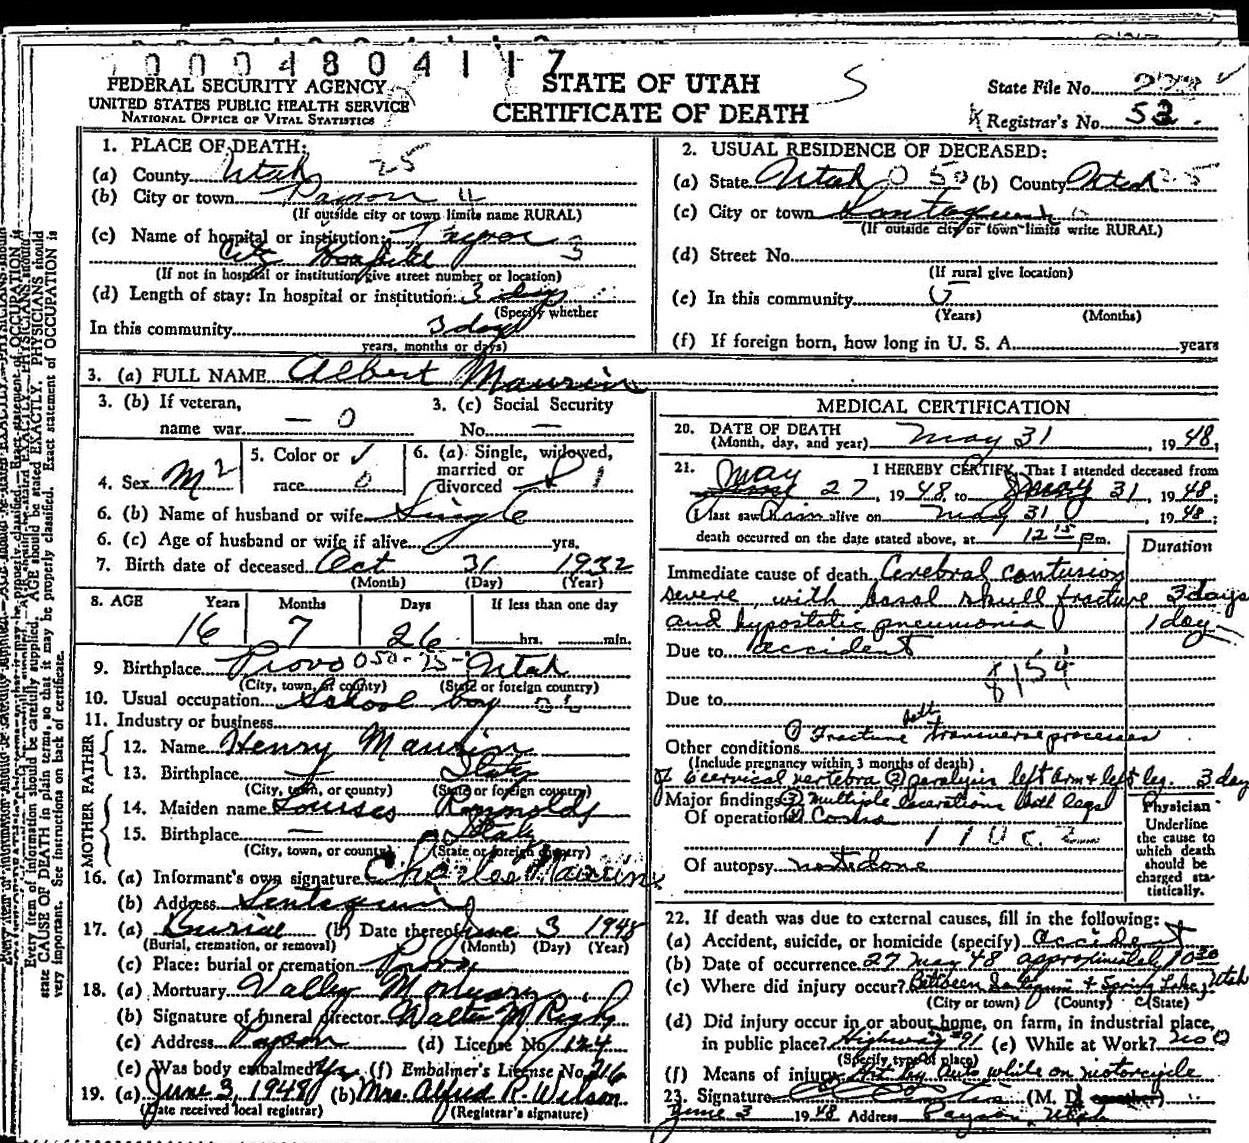 0004804117
FEDERAL SECURITY AGENCY
UNITED STATES PUBLIC HEALTH SERVICE
NATIONAL OFFICE OF VITAL STATISTICS
STATE OF UTAH
CERTIFICATE OF DEATH
S
State File No.
Registrar's No. 52.
1. PLACE OF DEATH:
(a) County Utah 25
(b) City or town Payson 11
(If outside city or town limits name RURAL)
(c) Name of hospital or institution: Payson 3
City Hospital
(If not in hospital or institution give street number or location)
(d) Length of stay: In hospital or institution: 3 days
(Specify whether
In this community 3 days
years, months or days)
2. USUAL RESIDENCE OF DECEASED:
(a) State Utah 050 (b) County Utah 25
(c) City or town Santaquin
(If outside city or town limits write RURAL)
(d) Street No.
(If rural give location)
(e) In this community
(Years) (Months)
(f) If foreign born, how long in U. S. A. years
3. (a) FULL NAME Albert Maurin
3. (b) If veteran,
name war — 0
3. (c) Social Security
No. —
4. Sex M 2
5. Color or
race 0
6. (a) Single, widowed,
married or
divorced 1
6. (b) Name of husband or wife Single
6. (c) Age of husband or wife if alive yrs.
7. Birth date of deceased Oct 31 1932
(Month) (Day) (Year)
8. AGE Years Months Days If less than one day
16 7 26 hrs. min.
9. Birthplace Provo 050-25- Utah
(City, town, or county) (State or foreign country)
10. Usual occupation School boy
11. Industry or business
FATHER
12. Name Henry Maurin
13. Birthplace Italy
(City, town, or county) (State or foreign country)
MOTHER
14. Maiden name Reynolds
15. Birthplace — Italy
(City, town, or county) (State or foreign country)
16. (a) Informant's own signature Charles Maurin
(b) Address Santaquin
17. (a) Burial (b) Date thereof June 3 1948
(Burial, cremation, or removal) (Month) (Day) (Year)
(c) Place: burial or cremation Provo
18. (a) Mortuary Valley Mortuary
(b) Signature of funeral director Walter M Rigby
(c) Address Payson (d) License No. 124
(e) Was body embalmed Yes (f) Embalmer's License No. 216
19. (a) June 3, 1948 (b) Mrs. Alfred R. Wilson
(Date received local registrar) (Registrar's signature)
MEDICAL CERTIFICATION
20. DATE OF DEATH
(Month, day, and year) May 31 1948;
21. I HEREBY CERTIFY, That I attended deceased from
May 27, 1948, to May 31, 1948;
I last saw him alive on May 31 1948;
death occurred on the date stated above, at 12 15 pm.
Duration
Immediate cause of death Cerebral contusion
severe with basal skull fracture 3 days
and hypostatic pneumonia 1 day
Due to accident
8154
Due to
Other conditions (1) Fracture both transverse processes
(Include pregnancy within 3 months of death)
of 6 cervical vertebra (2) paralysis left arm & left leg. 3 day
Major findings (3) multiple lacerations both legs
Of operations
Of autopsy not done
Physician
Underline
the cause to
which death
should be
charged sta-
tistically.
22. If death was due to external causes, fill in the following:
(a) Accident, suicide, or homicide (specify) accident
(b) Date of occurrence 27 May 48 approximately 10 30
(c) Where did injury occur? Between Santaquin & Spring Lake, Utah
(City or town) (County) (State)
(d) Did injury occur in or about home, on farm, in industrial place,
in public place? Highway 91 (e) While at Work? no 0
(Specify type of place)
(f) Means of injury Hit by auto while on motorcycle
23. Signature (M. D. or other)
June 3 1948 Address Payson Utah
Every item of information should be carefully supplied. AGE should be stated EXACTLY. PHYSICIANS should
state CAUSE OF DEATH in plain terms, so that it may be properly classified. Exact statement of OCCUPATION is
very important. See instructions on back of certificate.